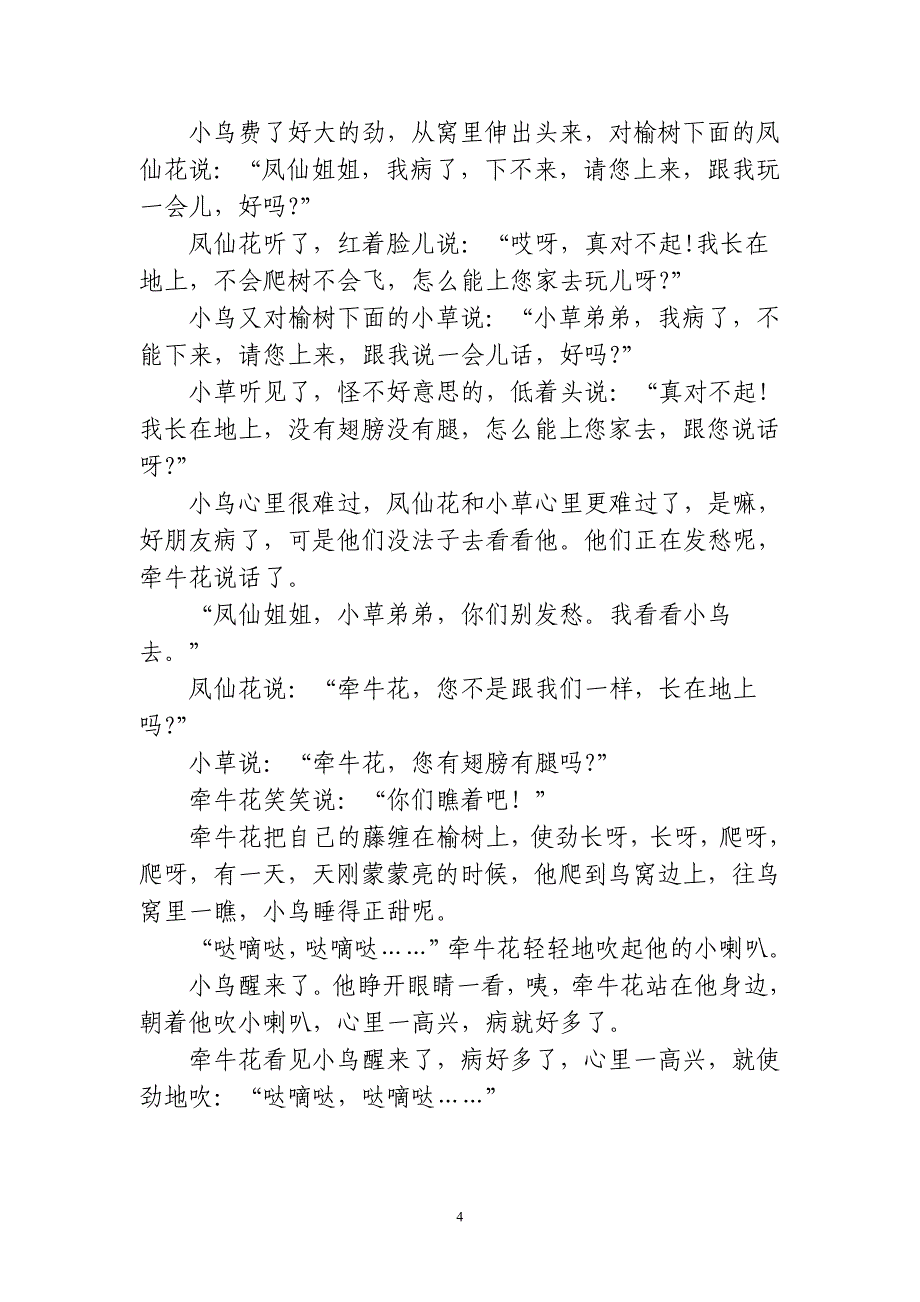 小鸟费了好大的劲，从窝里伸出头来，对榆树下面的凤
仙花说：“凤仙姐姐，我病了，下不来，请您上来，跟我玩
一会儿，好吗?”
凤仙花听了，红着脸儿说：“哎呀，真对不起!我长在
地上，不会爬树不会飞，怎么能上您家去玩儿呀?”
小鸟又对榆树下面的小草说：“小草弟弟，我病了，不
能下来，请您上来，跟我说一会儿话，好吗?”
小草听见了，怪不好意思的，低着头说：“真对不起!
我长在地上，没有翅膀没有腿，怎么能上您家去，跟您说话
呀?”
小鸟心里很难过，凤仙花和小草心里更难过了，是嘛，
好朋友病了，可是他们没法子去看看他。他们正在发愁呢，
牵牛花说话了。
“凤仙姐姐，小草弟弟，你们别发愁。我看看小鸟
去。”
凤仙花说：“牵牛花，您不是跟我们一样，长在地上
吗?”
小草说：“牵牛花，您有翅膀有腿吗?”
牵牛花笑笑说：“你们瞧着吧!”
牵牛花把自己的藤缠在榆树上，使劲长呀，长呀，爬呀，
爬呀，有一天，天刚蒙蒙亮的时候，他爬到鸟窝边上，往鸟
窝里一瞧，小鸟睡得正甜呢。
“哒嘀哒，哒嘀哒……”牵牛花轻轻地吹起他的小喇叭。
小鸟醒来了。他睁开眼睛一看，咦，牵牛花站在他身边，
朝着他吹小喇叭，心里一高兴，病就好多了。
牵牛花看见小鸟醒来了，病好多了，心里一高兴，就使
劲地吹：“哒嘀哒，哒嘀哒……”
4